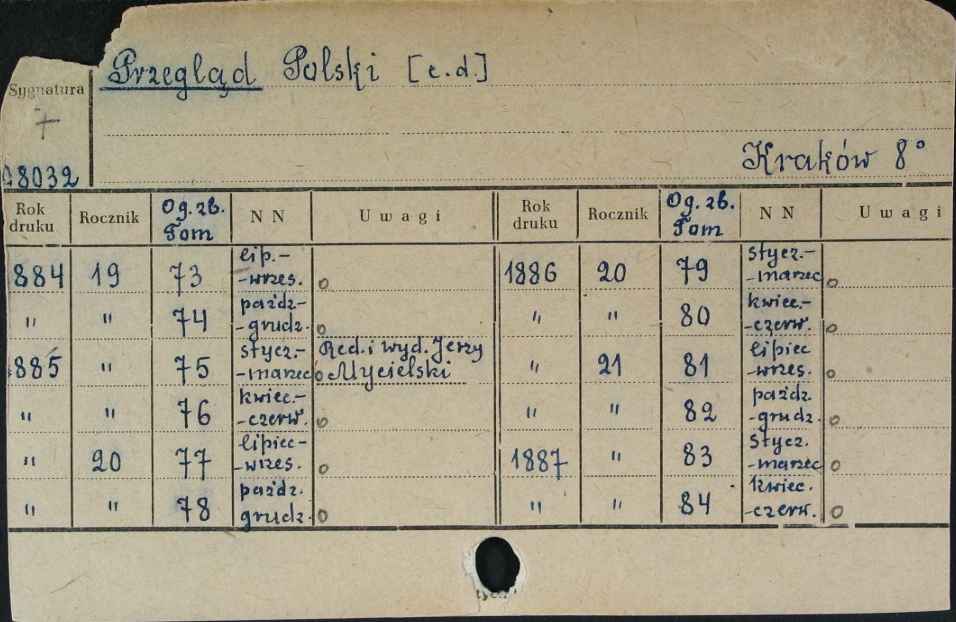 Przegląd Polski [c.d.]
Sygnatura
+
8032
Kraków 8°
Rok druku Rocznik Og. zb. Tom NN Uwagi Rok druku Rocznik Og. zb. Tom NN Uwagi
884 19 73 lip.--wrzes. o 1886 20 79 stycz.--marzec o
" " 74 paźdz--grudz. o " " 80 kwiec.--czerw. o
885 " 75 stycz.--marzec o Red. i wyd. Jerzy Mycielski " 21 81 lipiec -wrzes. o
" " 76 kwiec.--czerw. o " " 82 paźdz -grudz. o
" 20 77 lipiec--wrzes. o 1887 " 83 stycz. -marzec o
" " 78 paźdz. grudz. o " " 84 kwiec. -czerw. o